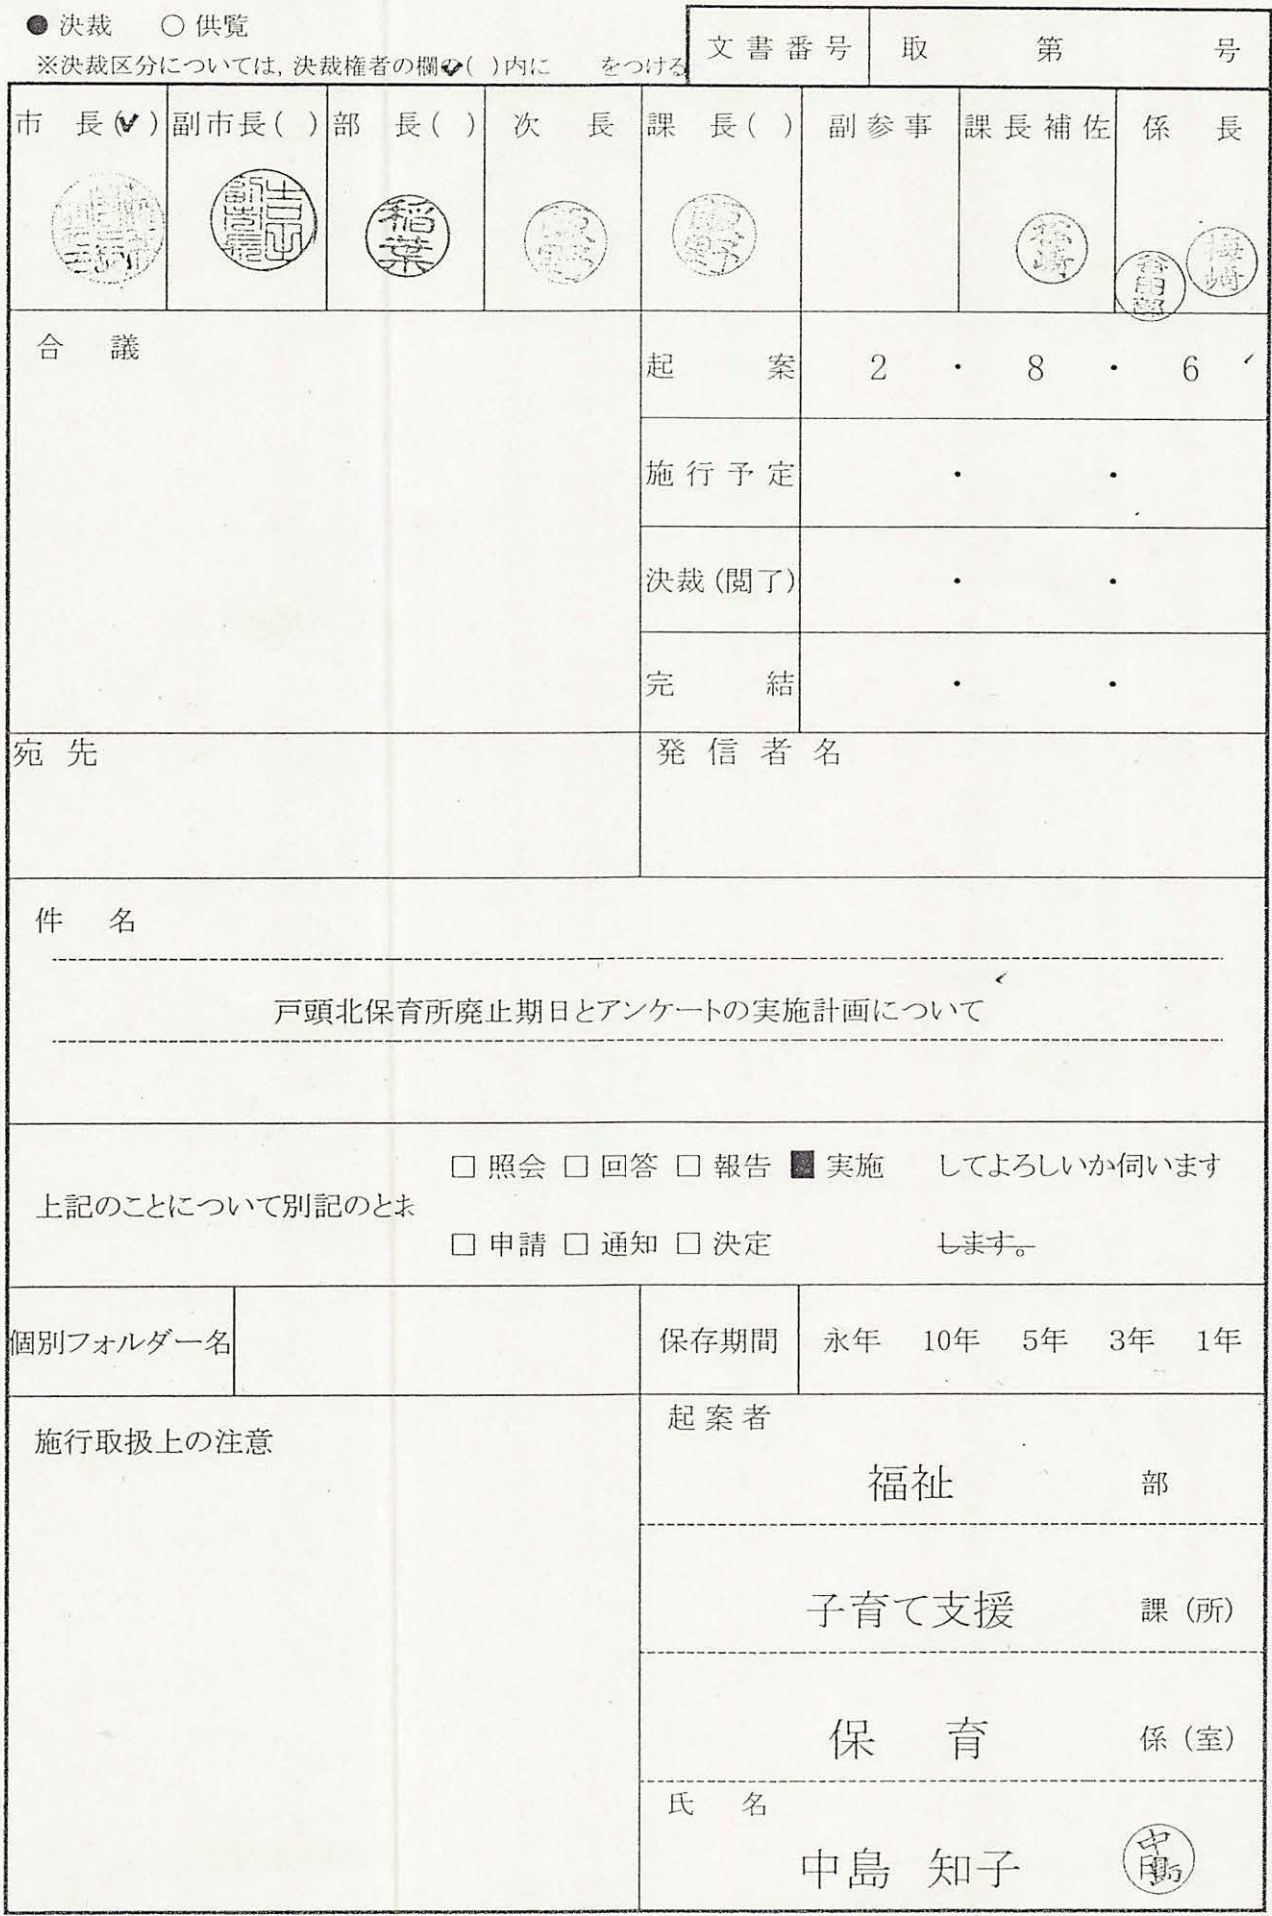 ● 決裁 ○ 供覧
※決裁区分については, 決裁権者の欄の( )内に をつける
文書番号 取 第 号
市 長(✓) 副市長( ) 部 長( ) 次 長 課 長( ) 副参事 課長補佐 係 長
稲葉
梅崎
谷田部
合 議
起 案 2 ・ 8 ・ 6
施行予定 ・ ・
決裁(閲了) ・ ・
完 結 ・ ・
宛先
発信者名
件 名
戸頭北保育所廃止期日とアンケートの実施計画について
□ 照会 □ 回答 □ 報告 ■ 実施 してよろしいか伺います
上記のことについて別記のとお
□ 申請 □ 通知 □ 決定 します。
個別フォルダー名
保存期間 永年 10年 5年 3年 1年
施行取扱上の注意
起案者
福祉 部
子育て支援 課(所)
保 育 係(室)
氏 名
中島 知子 中島